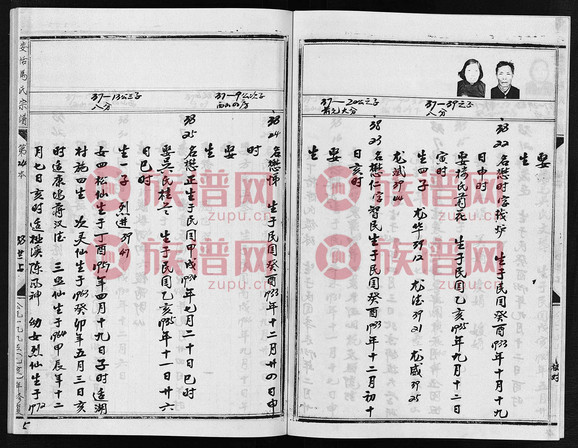 38—22 名懋时字俊炉 生于民国癸酉1933年十月十九
日申时
娶杨氏莉花 生于民国乙亥1935年九月十二日
寅时
生四子 龙华39—12 龙法39—21 龙威39—25
龙斌39—44
38—23 名懋仁字智民 生于民国癸酉1933年十二月初十
日亥时
娶
生
37—39之子
人分
37—20公之子
38—24 名懋悌 生于民国癸酉1933年十二月廿四日申
时
娶
生
38—25 名懋正 生于民国甲戌1934年七月二十日巳时
娶吴氏桂兰 生于民国乙亥1935年十一月廿六
日巳时
生一子 烈进39—47
女四 松仙生于丁酉1957年四月十九日子时适湖
村施四生 次 仙生于1963癸卯年五月三日亥
时适康塢蒋汉法 三 仙生于1964甲辰年十二
月七日亥时适 溪陈风神 幼女烈仙生于1972
37—9公次子
37—13公三子
人分
马氏宗谱
第 本
38世
5
族谱网
zupu.cn
族谱网
zupu.cn
族谱网
zupu.cn
族谱网
zupu.cn